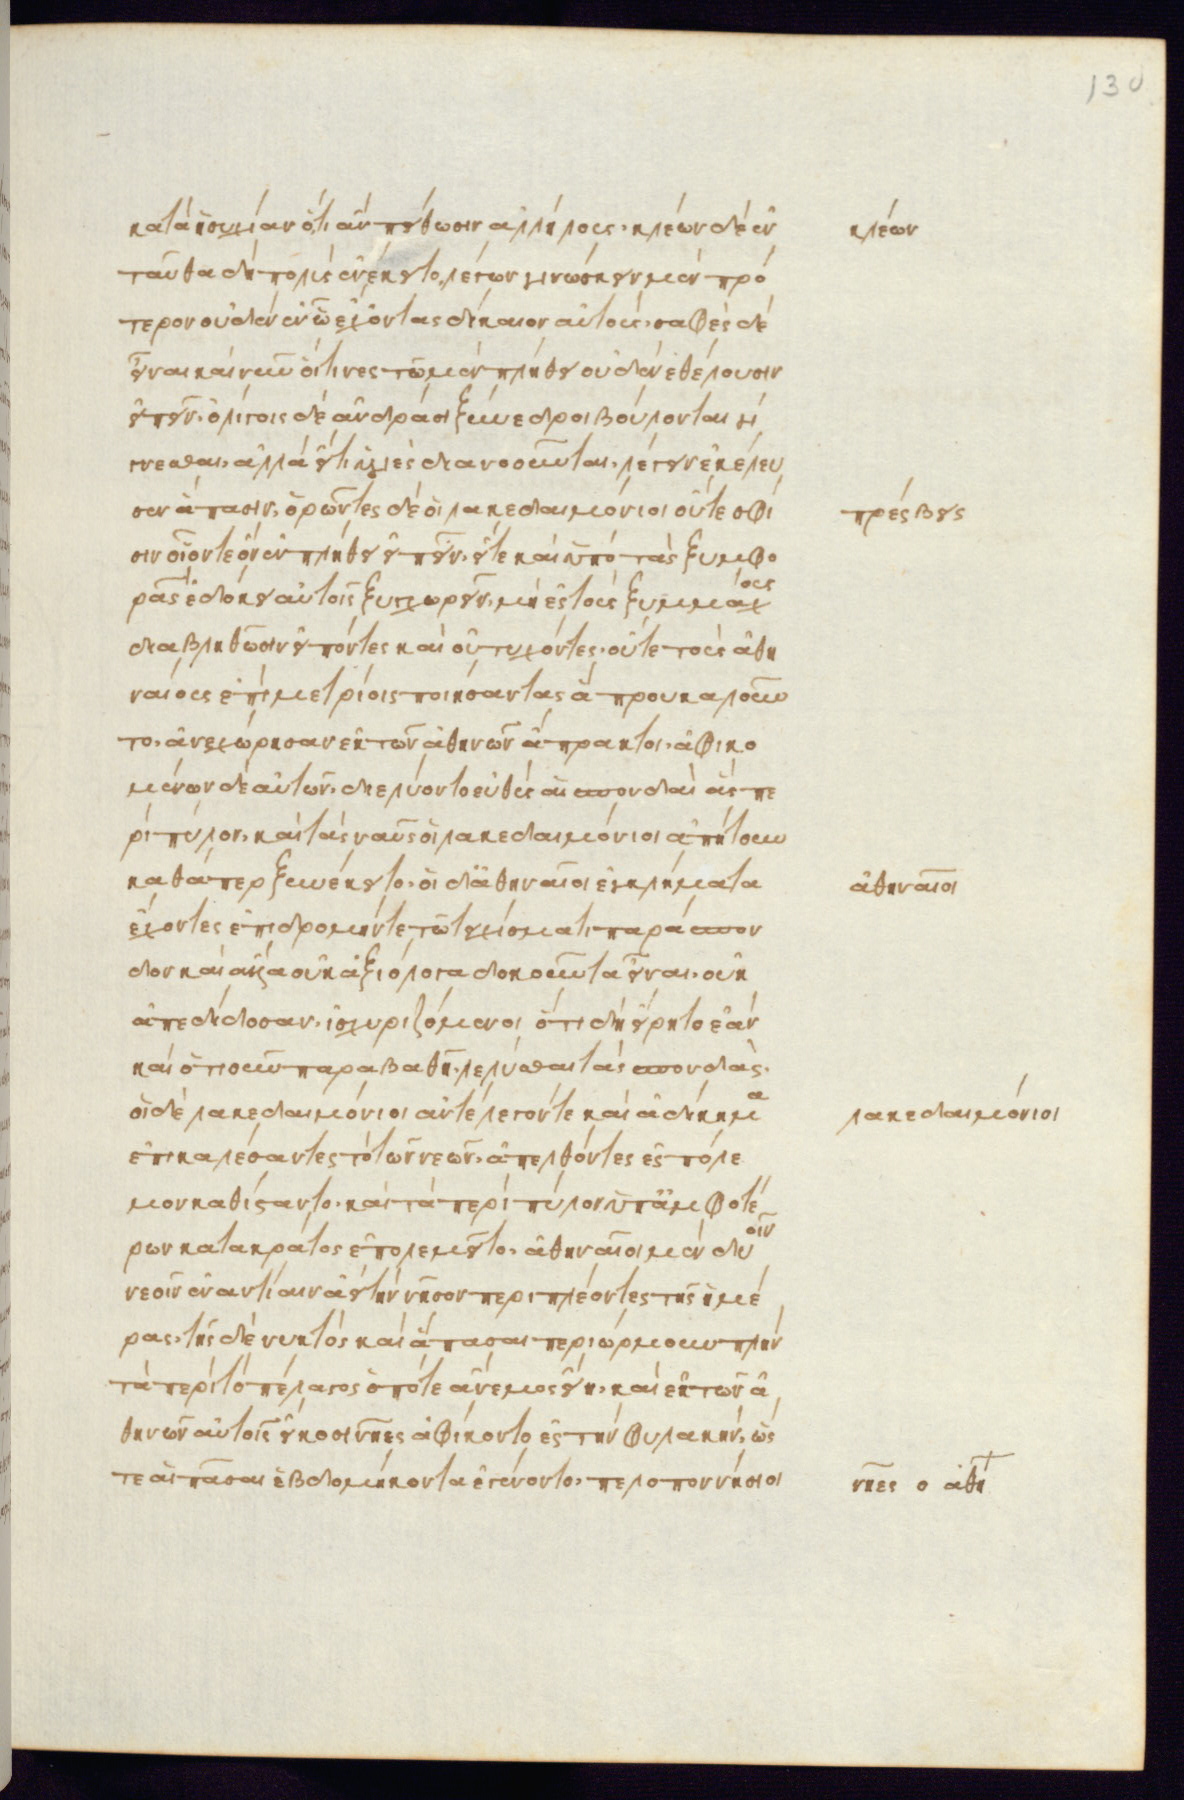 130
κατὰ ἡσυχίαν ὅτι ἂν πείθωσιν ἀλλήλους. κλέων δὲ ἐν
κλέων
ταῦθα δὴ πολὺς ἐνέκειτο, λέγων γινώσκειν μὲν πρό
τερον οὐδὲν ἐν νῷ ἔχοντας δίκαιον αὐτούς. σαφὲς δὲ
εἶναι καὶ νῦν οἵτινες τῷ μὲν πλήθει οὐδὲν ἐθέλουσιν
εἰπεῖν. ὀλίγοις δὲ ἀνδράσι ξύνεδροι βούλονται γί
γνεσθαι. ἀλλὰ εἴ τι ὑγιὲς διανοοῦνται. λέγειν ἐκέλευ
σεν ἅπασιν. ὁρῶντες δὲ οἱ λακεδαιμόνιοι οὔτε σφί
πρέσβεις
σιν οἷόν τε ὂν ἐν πλήθει εἰπεῖν. εἴ τε καὶ ὑπὸ τὰς ξυμφο
ρᾶς ἐδόκει αὐτοῖς ξυγχωρεῖν. μὴ ἐς τοὺς ξυμμάχους
διαβληθῶσιν εἰπόντες καὶ οὐ τυχόντες. οὔτε τοὺς ἀθη
ναίους ἐπὶ μετρίοις ποιήσαντας ἃ προυκαλοῦν
το. ἀνεχώρησαν ἐκ τῶν ἀθηνῶν ἄπρακτοι. ἀφικο
μένων δὲ αὐτῶν. διελύοντο εὐθὺς αἱ σπονδαὶ αἱ πε
ρὶ πύλον. καὶ τὰς ναῦς οἱ λακεδαιμόνιοι ἀπῄτουν
καθάπερ ξυνέκειτο. οἱ δ' ἀθηναῖοι ἐγκλήματα
ἀθηναῖοι
ἔχοντες ἐπιδρομήν τε τῷ τειχίσματι παράσπον
δον καὶ ἄλλα οὐκ ἀξιόλογα δοκοῦντα εἶναι. οὐκ
ἀπεδίδοσαν. ἰσχυριζόμενοι ὅτι δὴ εἴρητο ἐὰν
καὶ ὁτιοῦν παραβαθῇ. λελύσθαι τὰς σπονδάς.
οἱ δὲ λακεδαιμόνιοι ἀντέλεγόν τε καὶ ἀδίκημα
λακεδαιμόνιοι
ἐπικαλέσαντες τὸ τῶν νεῶν. ἀπελθόντες ἐς πόλε
μον καθίσταντο. καὶ τὰ περὶ πύλον ὑπ' ἀμφοτέ
ρων κατὰ κράτος ἐπολεμεῖτο. ἀθηναῖοι μὲν δυοῖν
νεοῖν ἐναντίαιν ἀεὶ τὴν νῆσον περιπλέοντες τῆς ἡμέ
ρας. τῆς δὲ νυκτὸς καὶ ἅπασαι περιώρμουν πλὴν
τὰ περὶ τὸ πέλαγος ὁπότε ἄνεμος εἴη. καὶ ἐκ τῶν ἀ
θηνῶν αὐτοῖς εἴκοσι νῆες ἀφίκοντο ἐς τὴν φυλακήν. ὥς
τε αἱ πᾶσαι ἑβδομήκοντα ἐγένοντο. πελοποννήσιοι
νῆες ο ἀθη